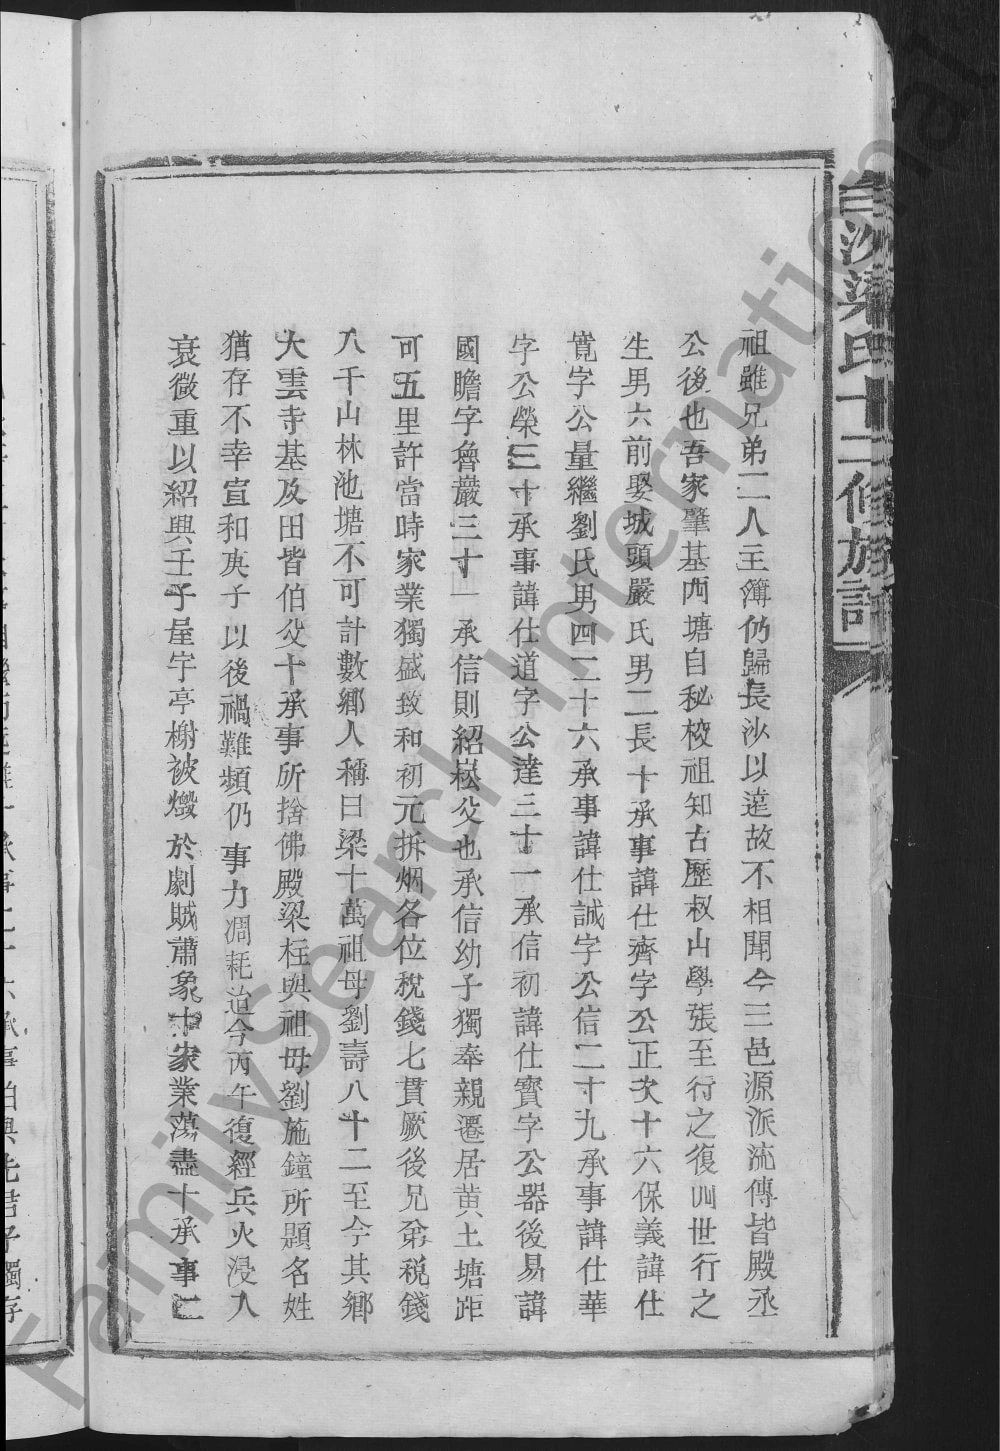 白沙梁氏十二修族譜
祖雖兄弟二人主簿仍歸長沙以遠故不相聞今三邑源派流傳皆殿丞
公後也吾家肇基西塘自秘校祖知古歷叔山學張至行之復四世行之
生男六前娶城頭嚴氏男二長十承事諱仕濟字公正次十六保義諱仕
寬字公量繼劉氏男四二十六承事諱仕誠字公信二十九承事諱仕華
字公榮三十承事諱仕道字公達三十一承信初諱仕寶字公器後易諱
國瞻字魯巖三十一承信則紹崧父也承信幼子獨奉親遷居黄土塘距
可五里許當時家業獨盛致和初元拆烟各位稅錢七貫厥後兄弟税錢
八千山林池塘不可計數鄉人稱曰梁十萬祖母劉壽八十二至今其鄉
大雲寺基及田皆伯父十承事所捨佛殿梁柱與祖毋劉施鐘所題名姓
猶存不幸宣和庚子以後禍難頻仍事力凋耗迨今丙午復經兵火浸入
衰微重以紹興壬子屋宇亭榭被燬於劇賊蕭象十家業蕩盡十承事仁
FamilySearch International